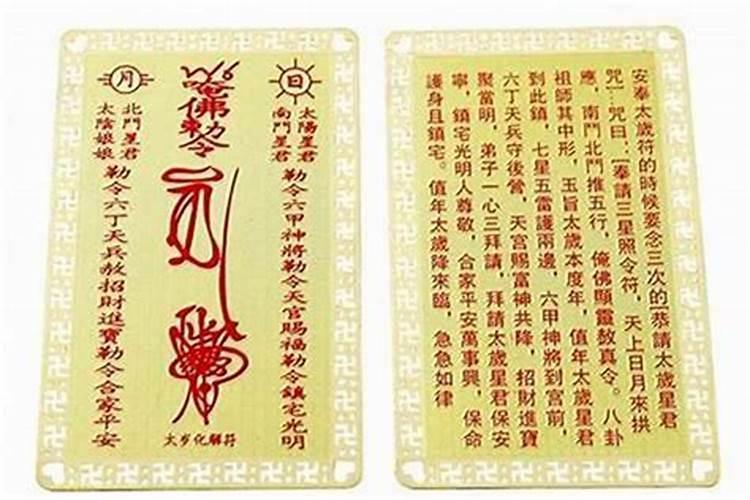 日
太陽星君
南鬥星君
勒令六甲神將勒令天官賜福勒令鎮宅光明
唵佛勅令
月
北鬥星君
太陰娘娘
勒令六丁天兵敖招財進寶勒令合家平安
太岁化解符
安奉太歲符的時候要念三次的[恭請太歲星君
咒]…咒曰:[奉請三星照令符,天上日月來拱
應,南鬥北鬥推五行,俺佛顯靈敖真令。八卦
祖師其中形,玉旨太歲本度年,值年太歲星君
到此鎮,七星五雷護兩邊,六甲神將到宮前,
六丁天兵守後營,天宮賜富神共降,招財進寶
聚當明,弟子一心三拜請,拜請太歲星君保安
寧,鎮宅光明人尊敬,合家平安萬事興,保命
護身且鎮宅。值年太歲降來臨,急急如律